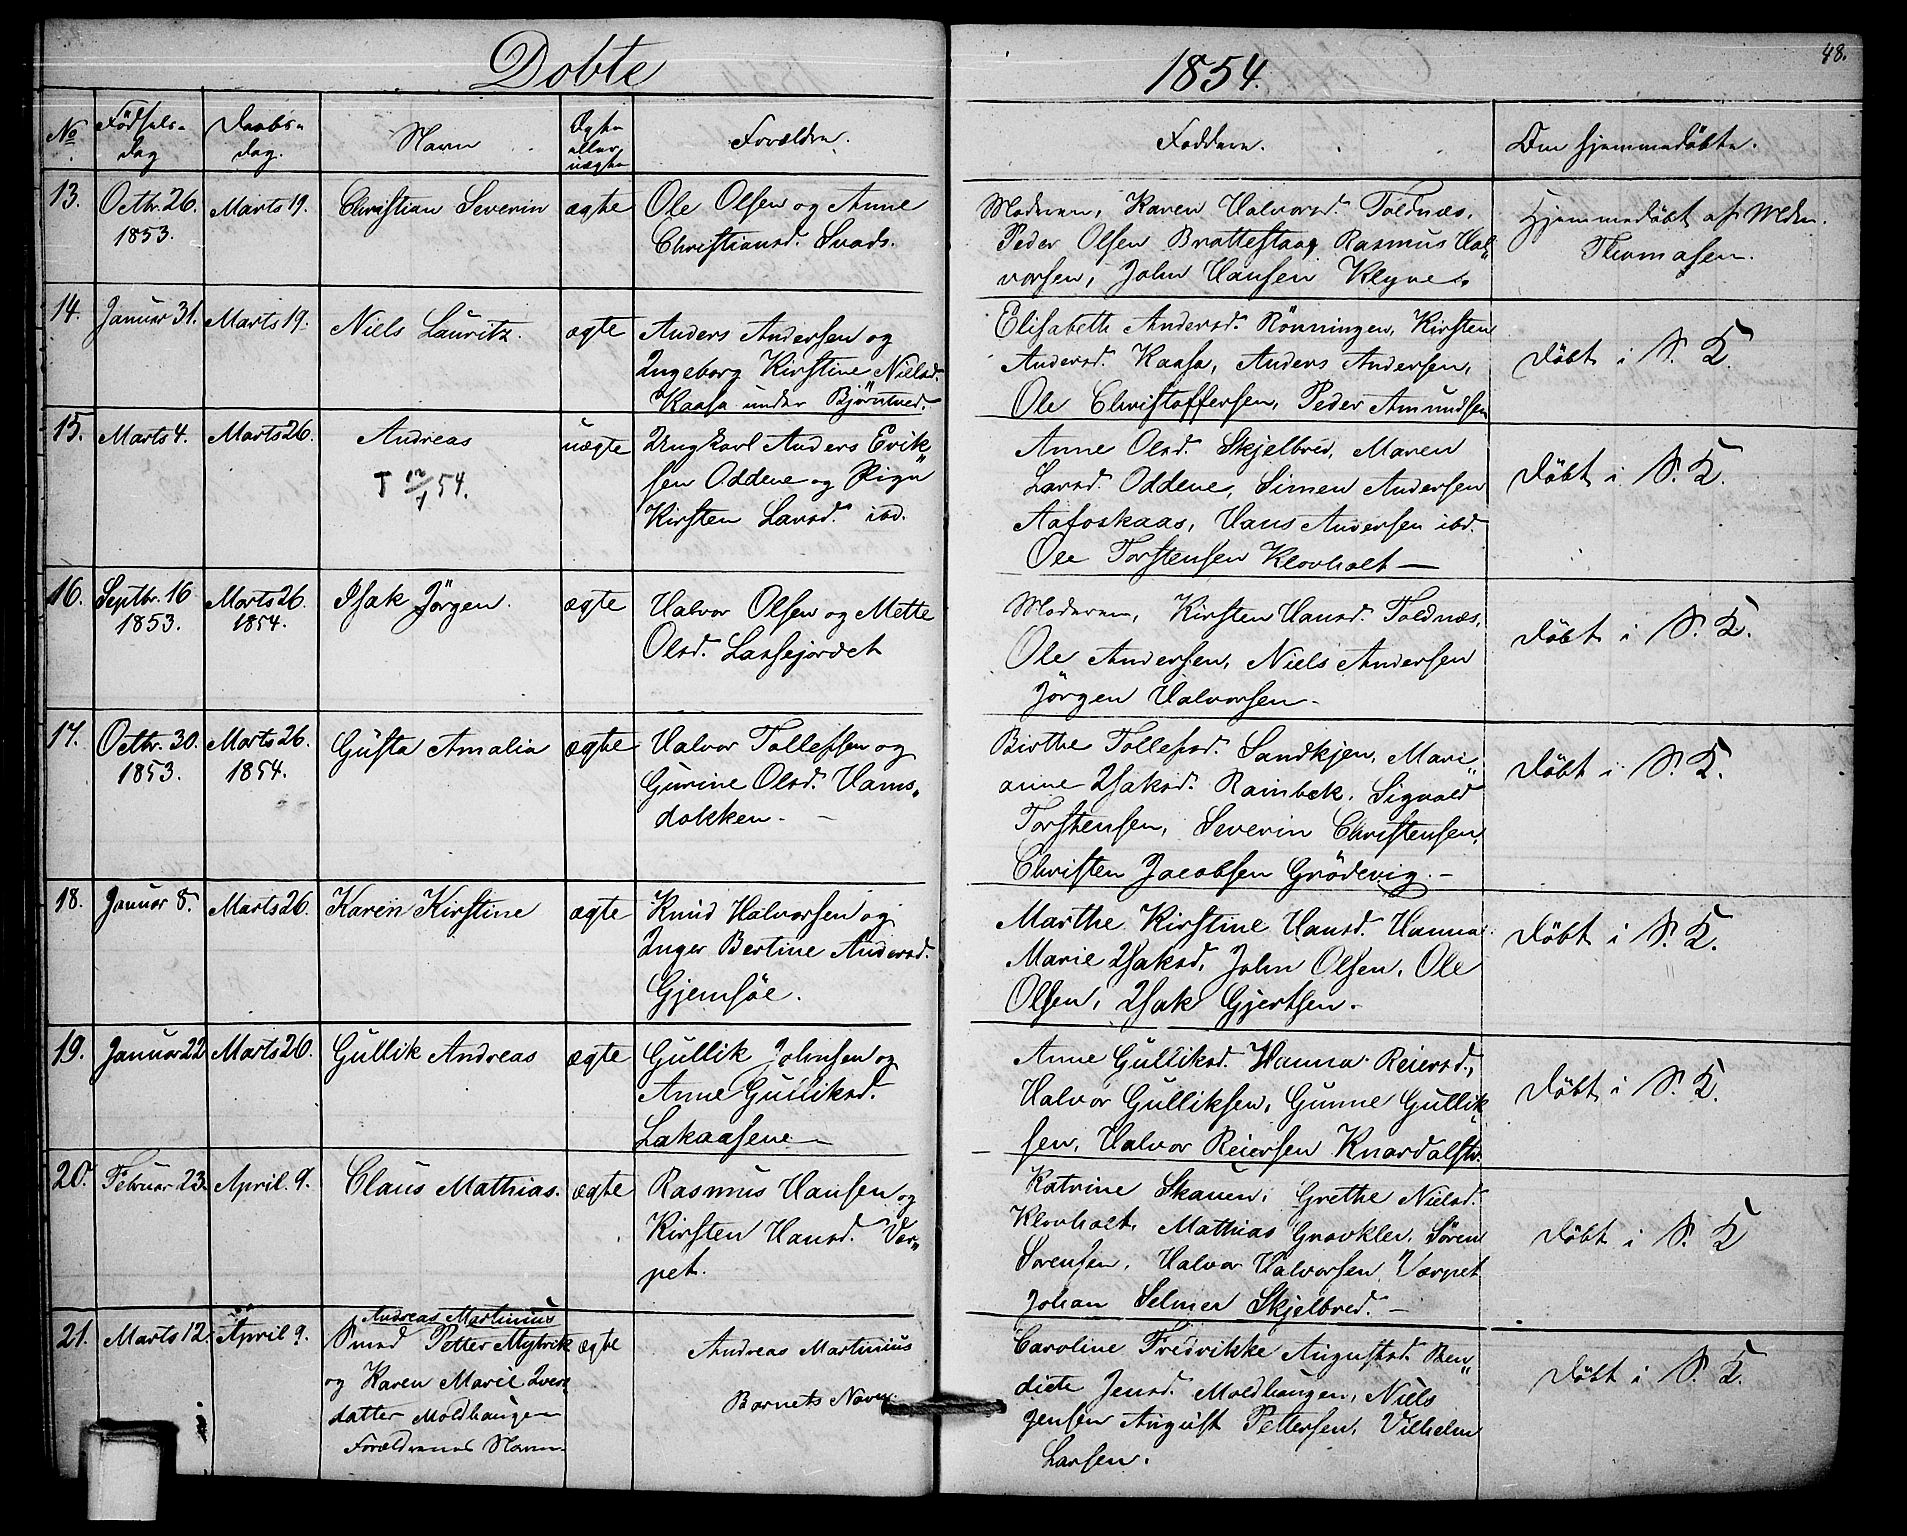 Döbte
1854.
48.
No
Födsels-
dag
Daabs-
dag.
Navn
Ægte
eller
uægte
Forældre.
Faddere.
Om hjemmedöbte.
13.
Octbr. 26.
1853.
Marts 19.
Christian Severin
ægte
Ole Olsen og Anne
Christiansd. Svads.
Moderen, Karen Halvorsd. Toldnæs,
Peder Olsen Brattestaag Rasmus Hal„
vorsen, John Hansen Klyve.
Hjemmedöbt af
Thomasen.
14.
Januar 31.
Marts 19.
Niels Lauritz.
ægte
Anders Andersen og
Ingeborg Kirstine Nielsd.
Kaasa under Björntved.
Elisabeth Andersd. Rönningen, Kirsten
Andersd. Kaasa, Anders Andersen,
Ole Christoffersen, Peder Amundsen
Döbt i S. K.
15.
Marts 4.
Marts 26.
Andreas
54.
uægte
Ungkarl Anders Erik„
sen Oddene og Pigen
Kirsten Larsd. ibd.
Anne Olsd. Skjelbred, Maren
Larsd. Oddene, Simen Andersen
Aafoskaas, Hans Andersen ibd.
Ole Torstensen Klovholt —
Döbt i S. K.
16.
Septbr. 16
1853.
Marts 26.
1854.
Isak Jörgen.
ægte
Halvor Olsen og Mette
Olsd. Lassejordet
Moderen, Kirsten Hansd. Toldnæs,
Ole Andersen, Niels Andersen
Jörgen Halvorsen -
Döbt i S. K.
17.
Octbr. 30.
1853.
Marts 26.
1854.
Gusta Amalia
ægte
Halvor Tollefsen og
Gurine Olsd. Hams„
dokken. —
Birthe Tollefsd. Sandkjen, Mari„
anne Isaksd. Rambek, Sigvald
Torstensen, Severin Christensen,
Christen Jacobsen Grödevig. -
Döbt i S. K.
18.
Januar 8.
Marts 26.
Karen Kirstine
ægte
Knud Halvorsen og
Inger Bertine Andersd.
Gjemsöe.
Marthe Kirstine Hansd. Hanna
Marie Isaksd, John Olsen, Ole
Olsen, Isak Gjertsen -
Döbt i S. K.
19.
Januar 22
Marts 26.
Gullik Andreas
ægte
Gullik Johnsen og
Anne Gulliksd.
Lakaasene —
Anne Gulliksd. Hanna Reiersd.,
Halvor Gulliksen, Gunne Gullik„
sen, Halvor Reiersen Knardalstr.
Döbt i S. K.
20.
Februar 23.
April 9.
Claus Mathias.
ægte
Rasmus Hansen og
Kirsten Hansd. Vær„
pet.
Katrine Skauen, Grethe Nielsd.
Klovholt, Mathias Gravklev, Sören
Sörensen, Halvor Halvorsen Værpet
Johan Selmer Skjelbred. -
Döbt i S. K
21.
Marts 12.
April 9.
Andreas Martinius
Petter Myhrvik
og Karen Marie Iver„
datter Moldhaugen
Forældrenes Navn
ægte
Andreas Martinius
Barnets Navn.
Caroline Fredrikke Augustsd. Ben„
dicte Jensd. Moldhaugen, Niels
Jensen August Pettersen, Vilhelm
Larsen.
Döbt i S. K.